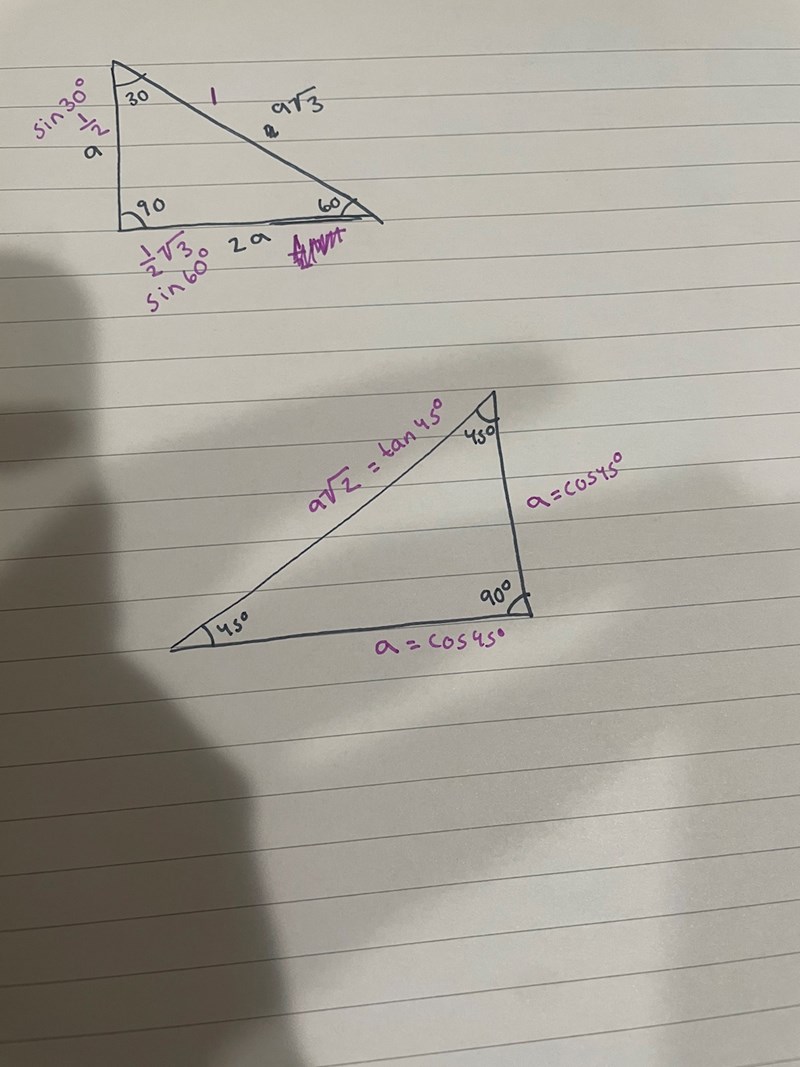 sin30°
1/2
a
30
1
a√3
90
60
1/2√3
sin60°
2a
a√2 = tan45°
45°
a=cos45°
90°
45°
a = cos45°